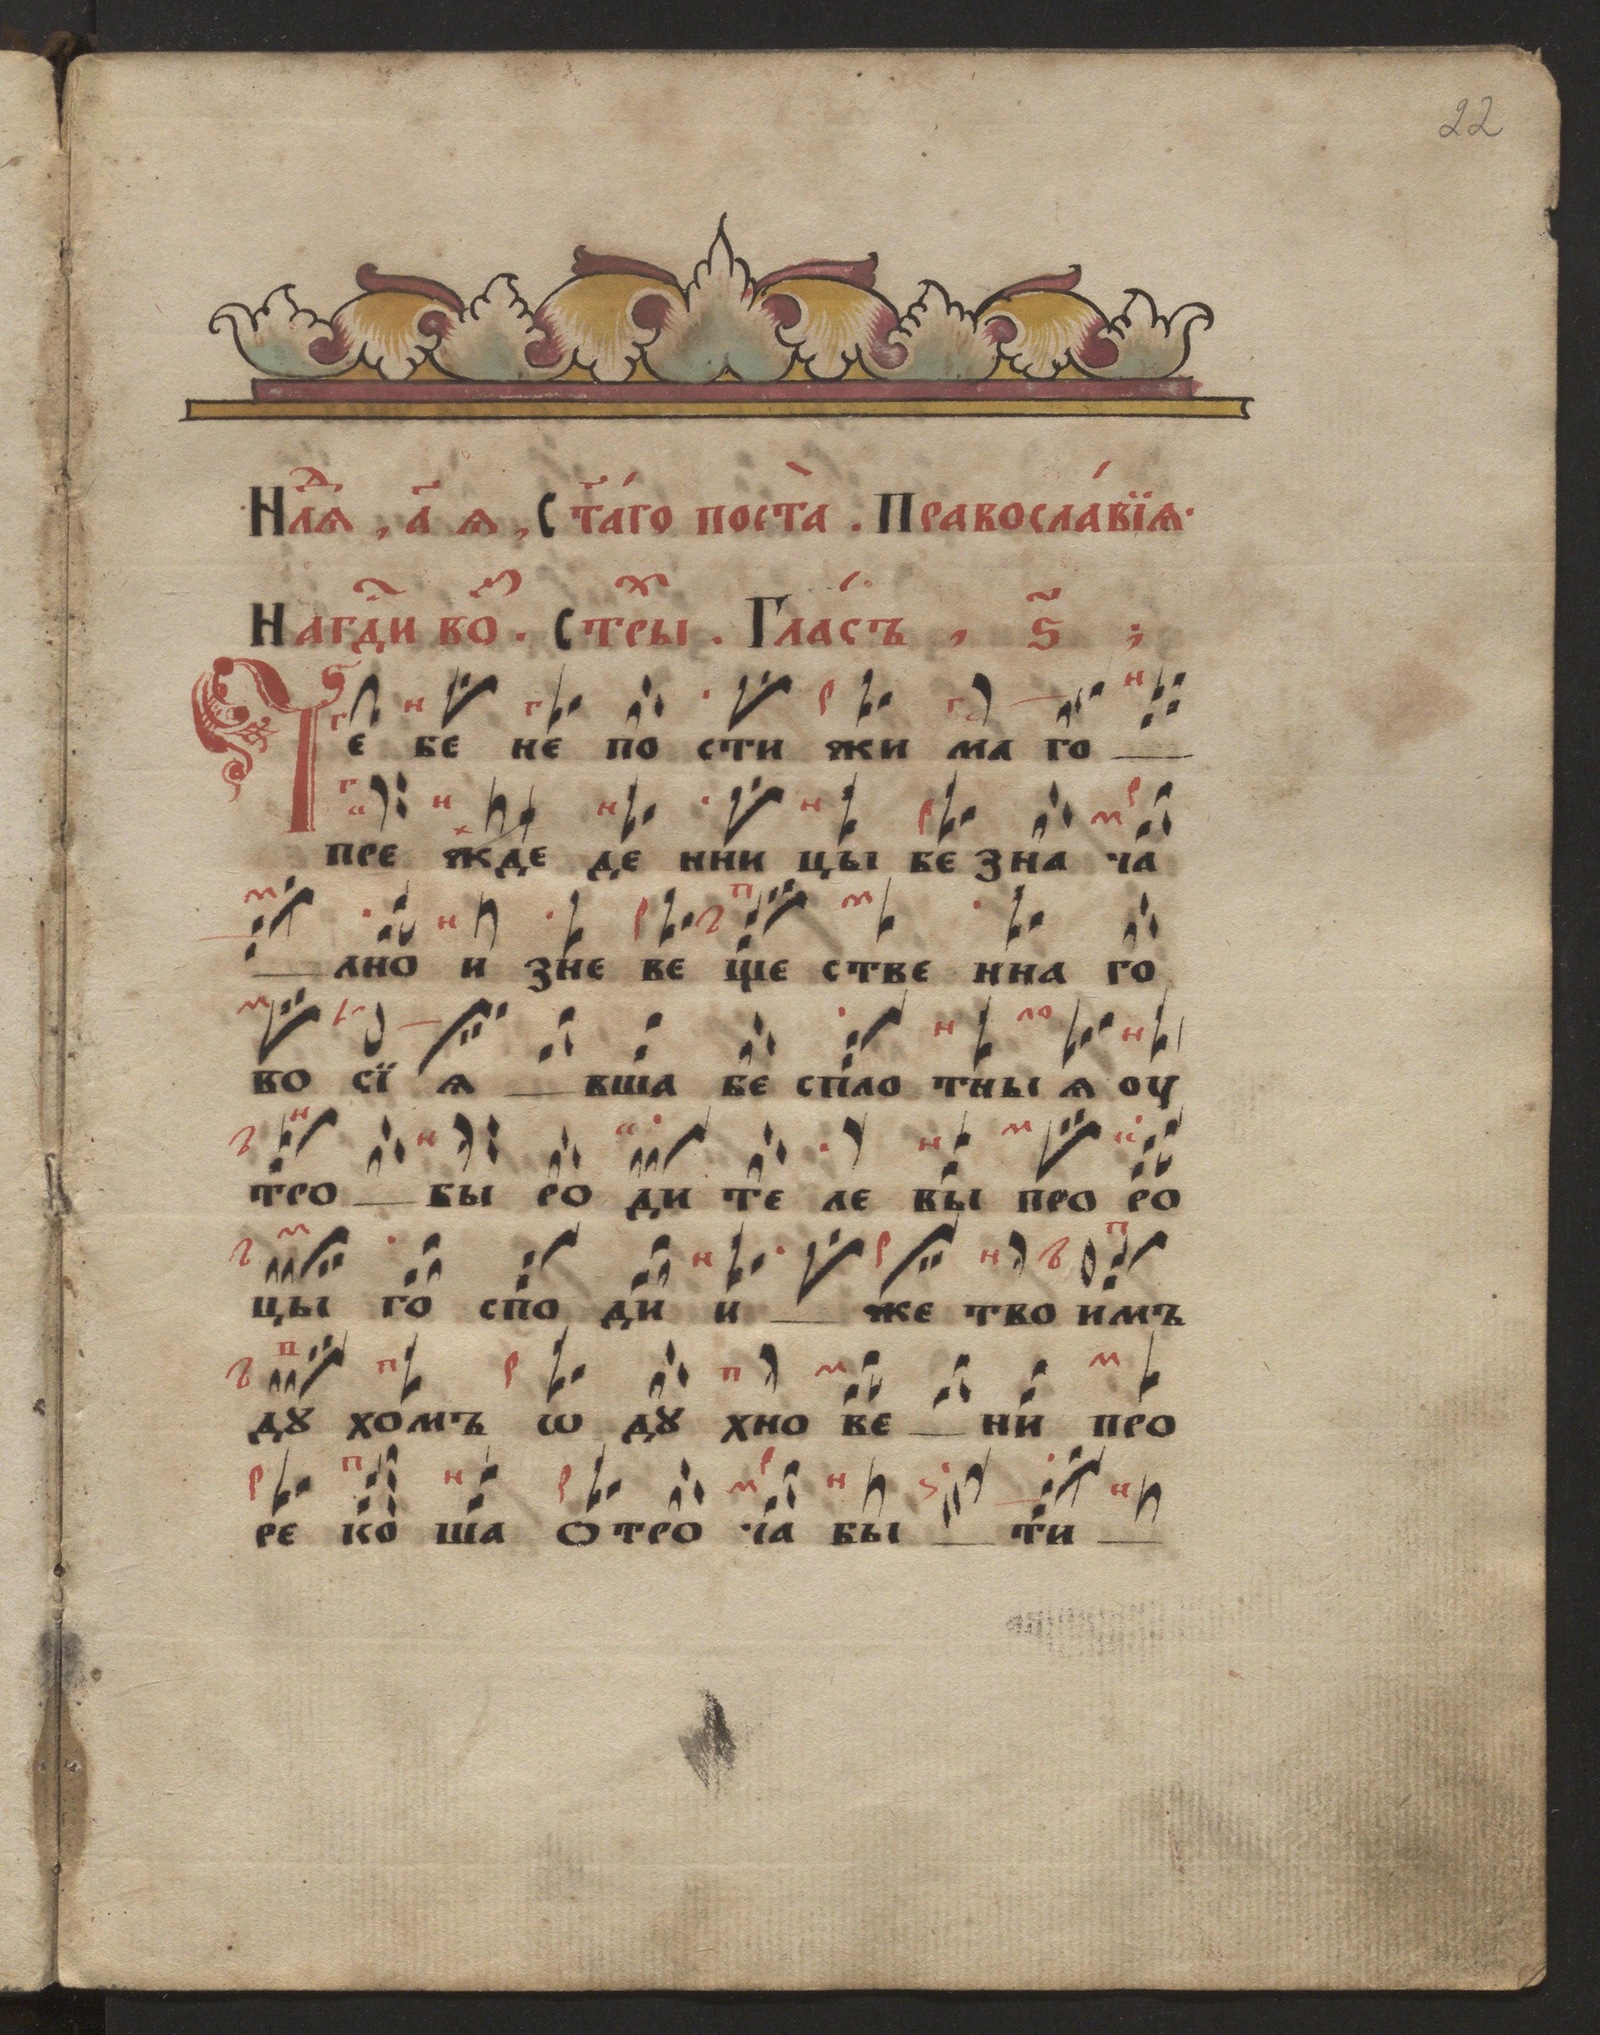 22
Нлⷣѧ , а҃ ѧ , Ст҃а́го поста̀ . Правосла́вїѧ .
Нагдⷭ҇и воⷥ . Стрⷯы . Гла́съ , ѕ҃ ;
Те бе не по сти жи ма го
пре жде де нни цы бе зна ча
лно и зне ве ще стве нна го
во сї ѧ вша бе спло тны ѧ оу
тро бы ро ди те ле вы про ро
цы го спо ди и же тво имъ
дꙋ хомъ ѡ дꙋ хно ве ни про
ре ко ша о тро ча бы ти